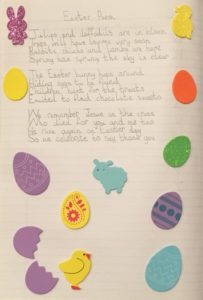 Easter Poem
Tulips and daffodils are in bloom
Trees will have leaves very soon
Rabbits, chicks and lambs we hope
Spring has sprung the sky is clear
The Easter bunny hops around
Hiding eggs to be found
Children hunt for the treats
Excited to find chocolate sweets
We remember Jesus on the cross
Who died for you and me too
He rose again on Easter day
So we celebrate to say thank you